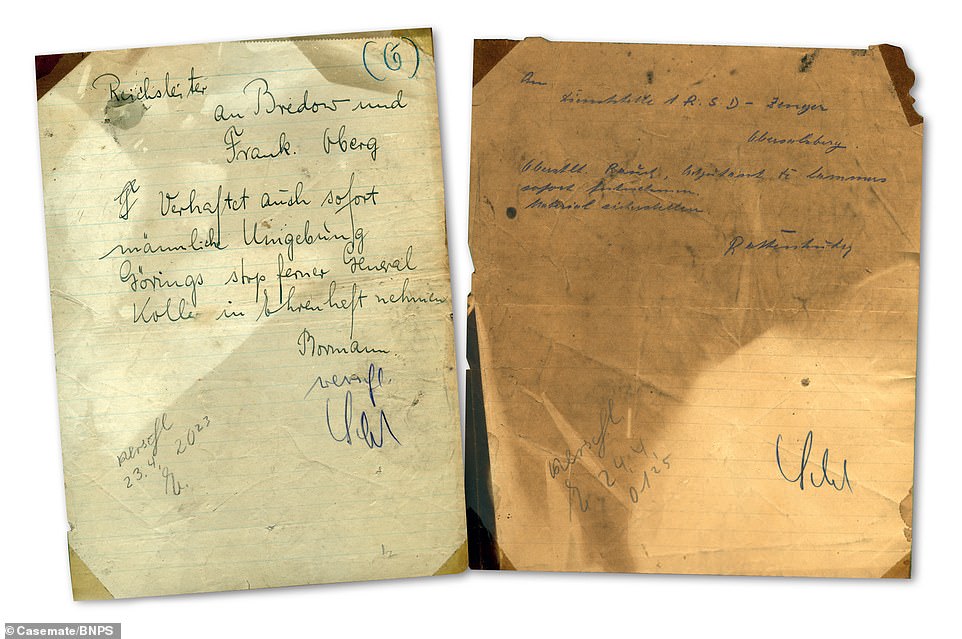 (6)
Reichsleiter
an Bredow und
Frank. Oberg
Verhaftet auch sofort
männliche Umgebung
Görings stop ferner General
Koller in Ehrenhaft nehmen
Bormann.
verschl.
verschl
23.4. 2023
An
Dienststelle 1 R.S.D-
Obersalzberg.
Oberstlt.
sofort festnehmen.
Material sicherstellen
Rattenhuber
verschl
24.4.
0125
© Casemate/BNPS